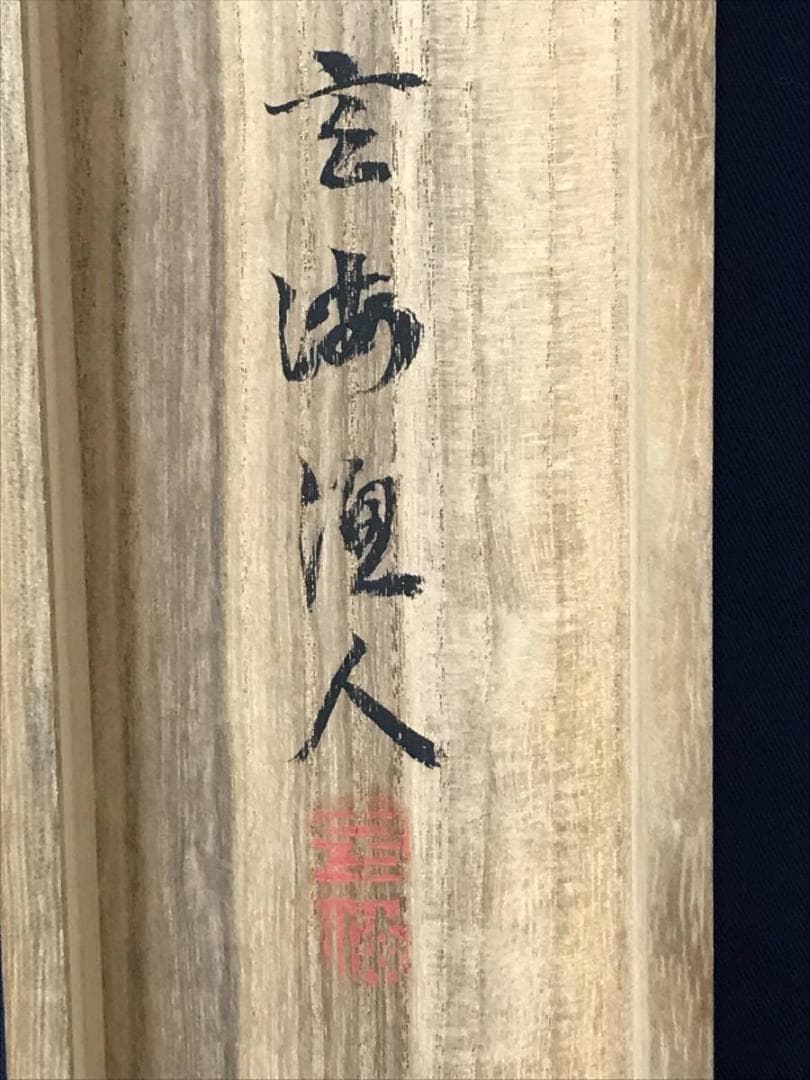 玄海漁人